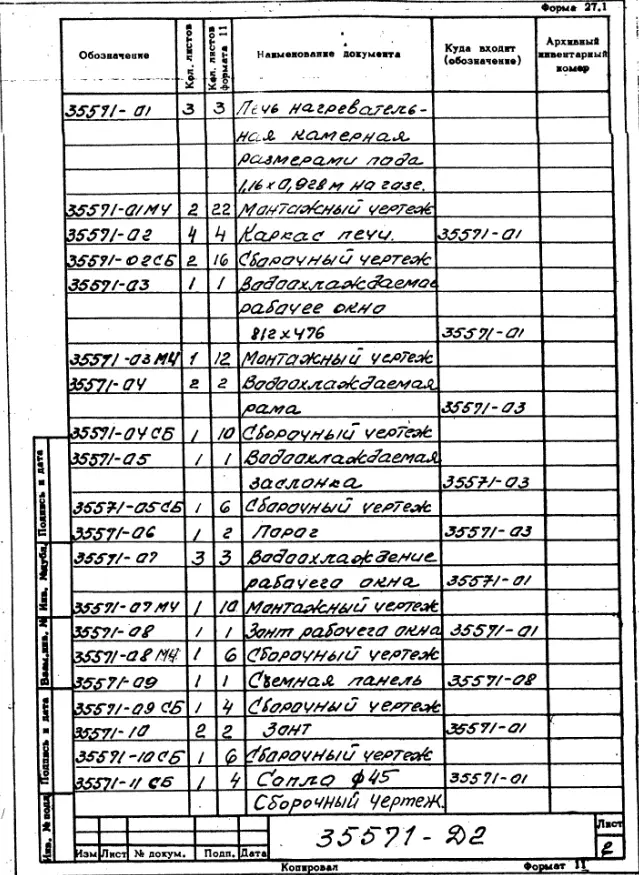 Форма 27.1
Обозначение Кол. листов Кол. листов формата 11 Наименование документа Куда входит (обозначение) Архивный инвентарный номер
35571-01 3 3 Печь нагреватель-
ная камерная
размерами пода
1,16 x 0,928 м на газе.
35571-01МЧ 2 22 Монтажный чертеж
35571-02 4 4 Каркас печи. 35571-01
35571-02СБ 2 16 Сборочный чертеж
35571-03 1 1 Водоохлаждаемое
рабочее окно
812x476 35571-01
35571-03МЧ 1 12 Монтажный чертеж
35571-04 2 2 Водоохлаждаемая
рама 35571-03
35571-04СБ 1 10 Сборочный чертеж
35571-05 1 1 Водоохлаждаемая
заслонка 35571-03
35571-05СБ 1 6 Сборочный чертеж
35571-06 1 2 Порог 35571-03
35571-07 3 3 Водоохлаждение
рабочего окна 35571-01
35571-07МЧ 1 10 Монтажный чертеж
35571-08 1 1 Зонт рабочего окна 35571-01
35571-08МЧ 1 6 Сборочный чертеж
35571-09 1 1 Съемная панель 35571-08
35571-09СБ 1 4 Сборочный чертеж
35571-10 2 2 Зонт 35571-01
35571-10СБ 1 6 Сборочный чертеж
35571-11 СБ 1 4 Сопло ф45 35571-01
Сборочный чертеж.
Подпись и дата
Инв. № дубл.
Взам.инв. №
Подпись и дата
Инв. № подл
35571-Д2
Лист
2
Изм Лист № докум. Подп. Дата
Копировал Формат 11